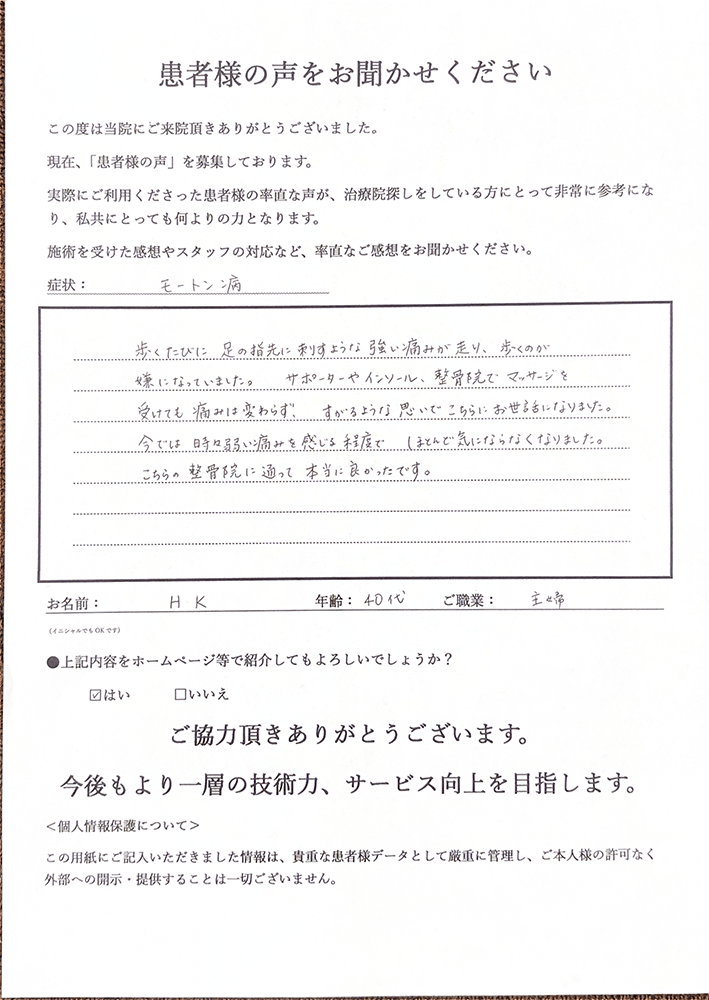 患者様の声をお聞かせください
この度は当院にご来院頂きありがとうございました。
現在、「患者様の声」を募集しております。
実際にご利用くださった患者様の率直な声が、治療院探しをしている方にとって非常に参考にな
り、私共にとっても何よりの力となります。
施術を受けた感想やスタッフの対応など、率直なご感想をお聞かせください。
症状: モートン病
歩くたびに 足の指先に刺すような強い痛みが走り、歩くのが
嫌になっていました。 サポーターやインソール、整骨院でマッサージを
受けても痛みは変わらず、 すがるような思いでこちらにお世話になりました。
今では時々弱い痛みを感じる程度で ほとんど気にならなくなりました。
こちらの整骨院に通って本当に良かったです。
お名前: H K 年齢: 40代 ご職業: 主婦
(イニシャルでもOKです)
●上記内容をホームページ等で紹介してもよろしいでしょうか?
☑はい □いいえ
ご協力頂きありがとうございます。
今後もより一層の技術力、サービス向上を目指します。
<個人情報保護について>
この用紙にご記入いただきました情報は、貴重な患者様データとして厳重に管理し、ご本人様の許可なく
外部への開示・提供することは一切ございません。